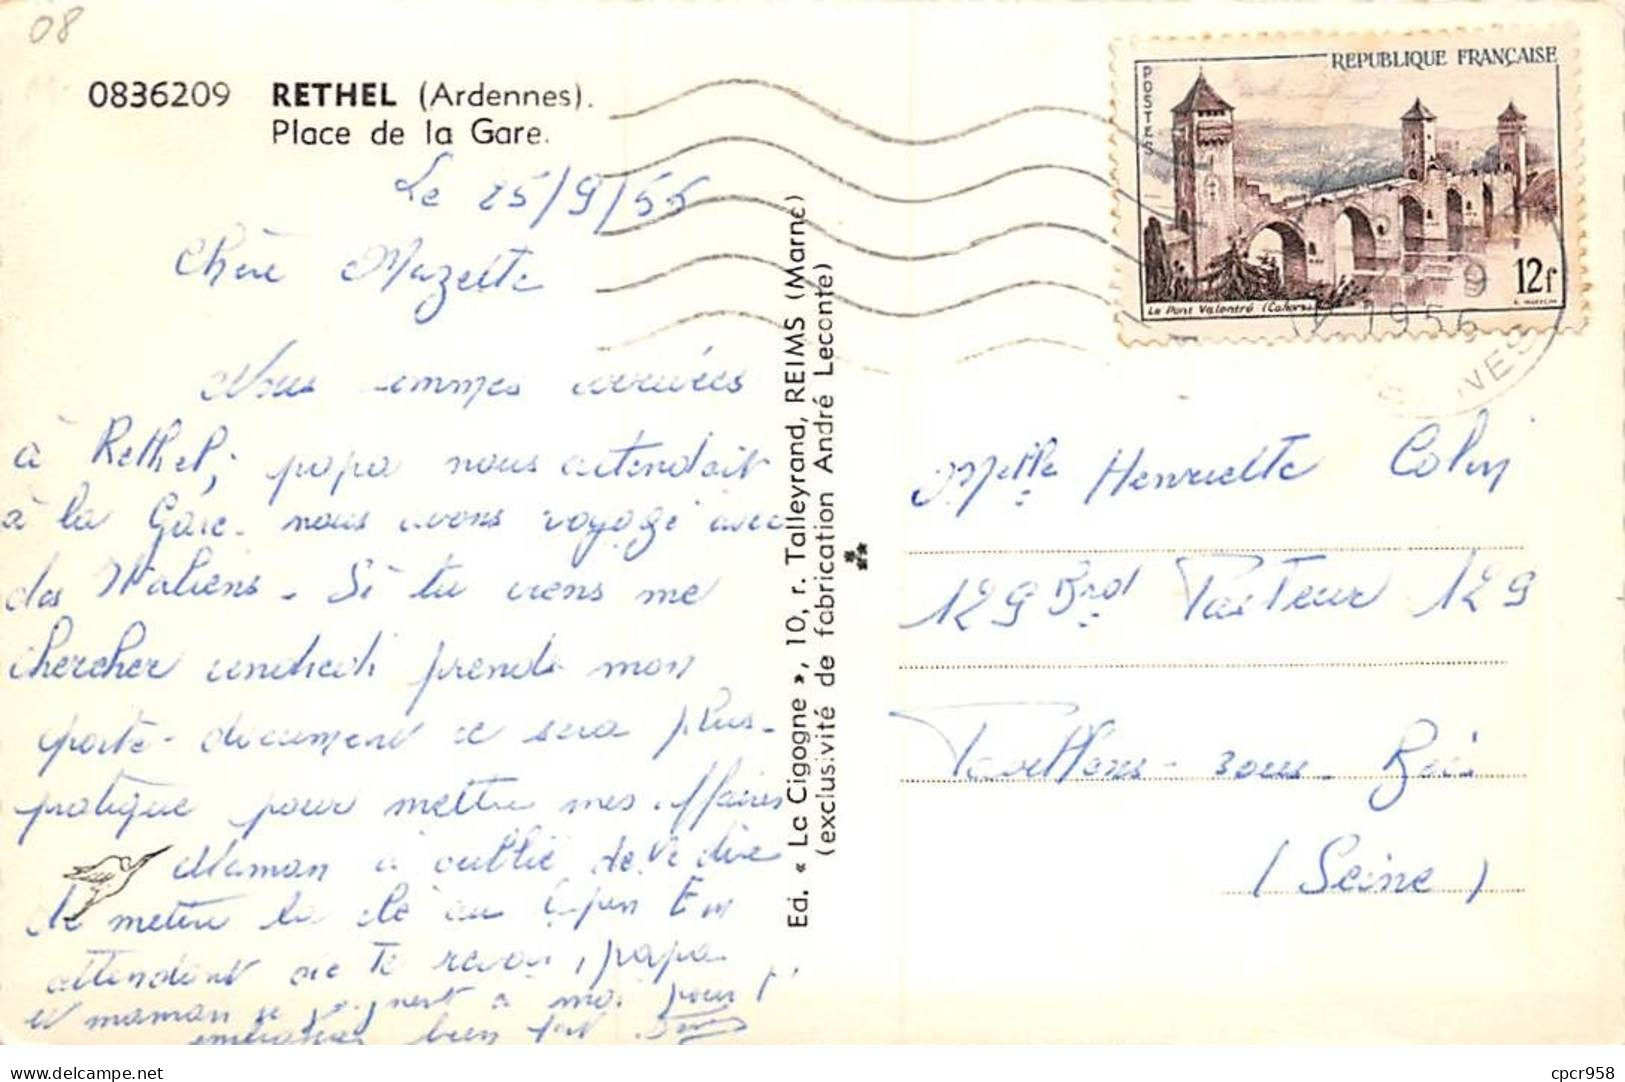 08
0836209 RETHEL (Ardennes).
Place de la Gare.
Le 25/9/56
Chère Mazette
Nous sommes arrivées
à Rethel, papa nous attendait
à la Gare. nous avons voyagé avec
des Italiens - Si tu viens me
chercher vendredi prends mon
porte-document ce sera plus
pratique pour mettre mes affaires
Maman a oublié de te dire
de mettre la clé au En
attendant de te revoir, papa
et maman se joignent à moi pour t'
embrasser bien fort.
Ed. « La Cigogne », 10, r. Talleyrand, REIMS (Marne)
(exclusivité de fabrication André Leconte)
REPUBLIQUE FRANÇAISE
POSTES
12f
Le Pont Valentré (Cahors)
-9
1956
Melle Henriette Colin
129 Brd Pasteur 129
Pavillons-sous-Bois
(Seine)
delcampe.net
cpcr958